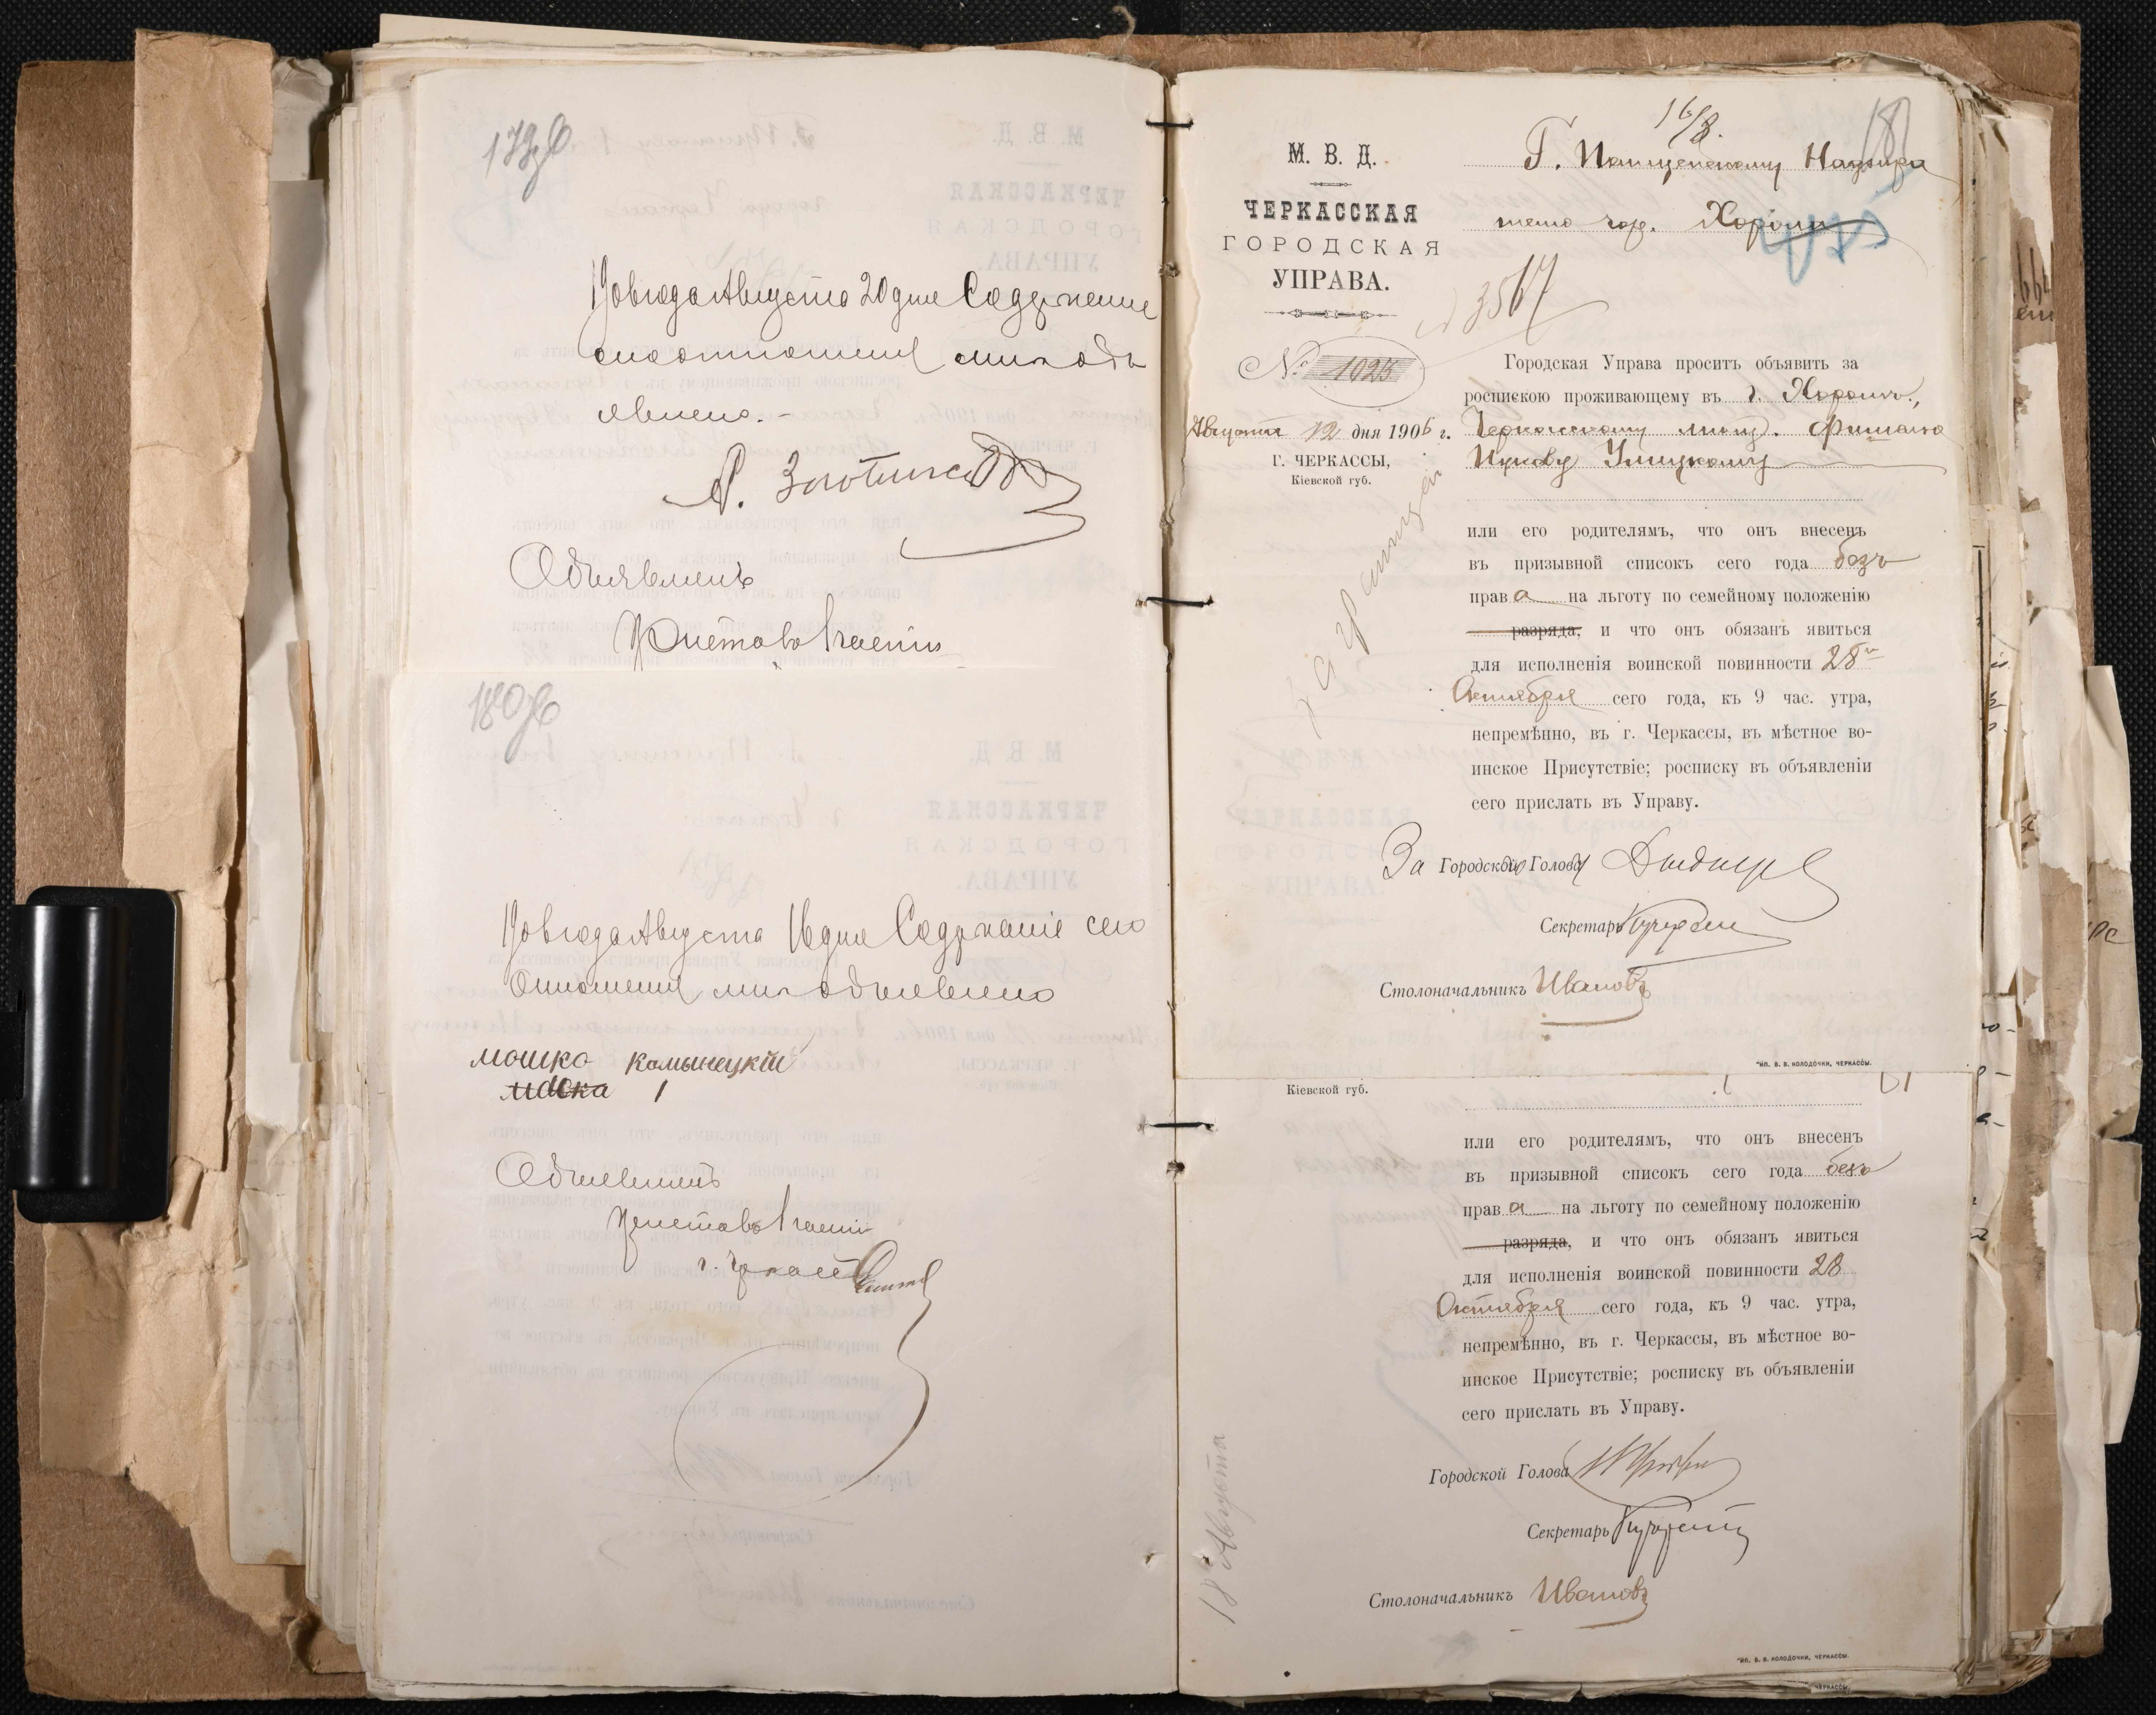 179об
1906 года Августа 20 дня Содержание
сего отношения мне объ
явлено.-
Объявилъ
Приставъ 1 части
180об
1906 года Августа 16 дня Содержаніе сего
отношения мне объявлено
мошко Камынецкій
Объявилъ
Приставъ 1 части
г. Черкассъ
16/8.
181
М. В. Д.
ЧЕРКАССКАЯ
ГОРОДСКАЯ
УПРАВА.
№ 1025
Августа 12 дня 1906 г.
Г. ЧЕРКАССЫ,
Кіевской губ.
Г. Полицейскому Надзира
телю гор. Хорола
3567
заграницей
Городская Управа проситъ объявить за
роспискою проживающему въ г. Хоролѣ,
Черкасскому мѣщ.
или его родителямъ, что онъ внесенъ
въ призывной списокъ сего года безъ
права на льготу по семейному положенію
разряда, и что онъ обязанъ явиться
для исполненія воинской повинности 28го
Октября сего года, къ 9 час. утра,
непремѣнно, въ г. Черкассы, въ мѣстное во-
инское Присутствіе; росписку въ объявленіи
сего прислать въ Управу.
За Городского Голову
Секретарь
Столоначальникъ Ивановъ
ТИП. В. В. КОЛОДОЧКИ, ЧЕРКАССЫ.
Кіевской губ.
или его родителямъ, что онъ внесенъ
въ призывной списокъ сего года безъ
права на льготу по семейному положенію
разряда, и что онъ обязанъ явиться
для исполненія воинской повинности 28
Октября сего года, къ 9 час. утра,
непремѣнно, въ г. Черкассы, въ мѣстное во-
инское Присутствіе; росписку въ объявленіи
сего прислать въ Управу.
Городской Голова
Секретарь
Столоначальникъ Ивановъ
18 Августа
ТИП. В. В. КОЛОДОЧКИ, ЧЕРКАССЫ.
ЧЕРКАССЫ.